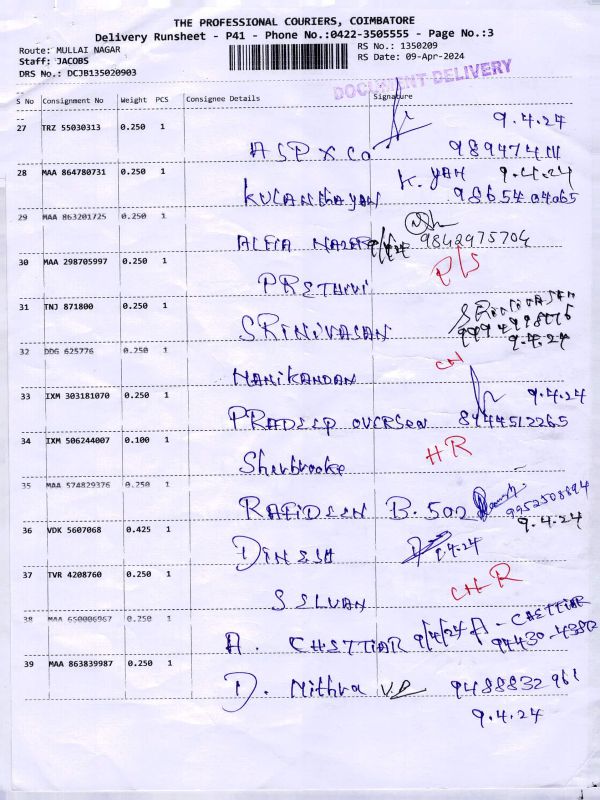 THE PROFESSIONAL COURIERS, COIMBATORE
Delivery Runsheet - P41 - Phone No.:0422-3505555 - Page No.:3
Route: MULLAI NAGAR
RS No.: 1350209
Staff: JACOBS
RS Date: 09-Apr-2024
DRS No.: DCJB135020903
DOCUMENT DELIVERY
S No Consignment No Weight PCS Consignee Details Signature
27 TRZ 55030313 0.250 1
9.4.24
ASP X Co
28 MAA 864780731 0.250 1
K. YAH 9.4.24
KULANthAYAN
29 MAA 863201725 0.250 1
ALFIA
9842975704
30 MAA 298705997 0.250 1
P/S
PRETHIVI
31 TNJ 871800 0.250 1
SRINIVASAN
SRINIVASAN
9.4.24
32 DDG 625776 0.250 1
MANIKANDAN
33 IXM 303181070 0.250 1
9.4.24
PRADEEP OVERSEA 8144512265
34 IXM 506244007 0.100 1
HR
Sherbrooke
35 MAA 574829376 0.250 1
B-502
9952508894
9.4.24
36 VDK 5607068 0.425 1
DINESH
9.4.24
37 TVR 4208760 0.250 1
SSLVAN
38 MAA 650006967 0.250 1
A. CHETTIAR 9/4/24 A - CHETTIAR
39 MAA 863839987 0.250 1
D. Nithra 9488832961
9.4.24